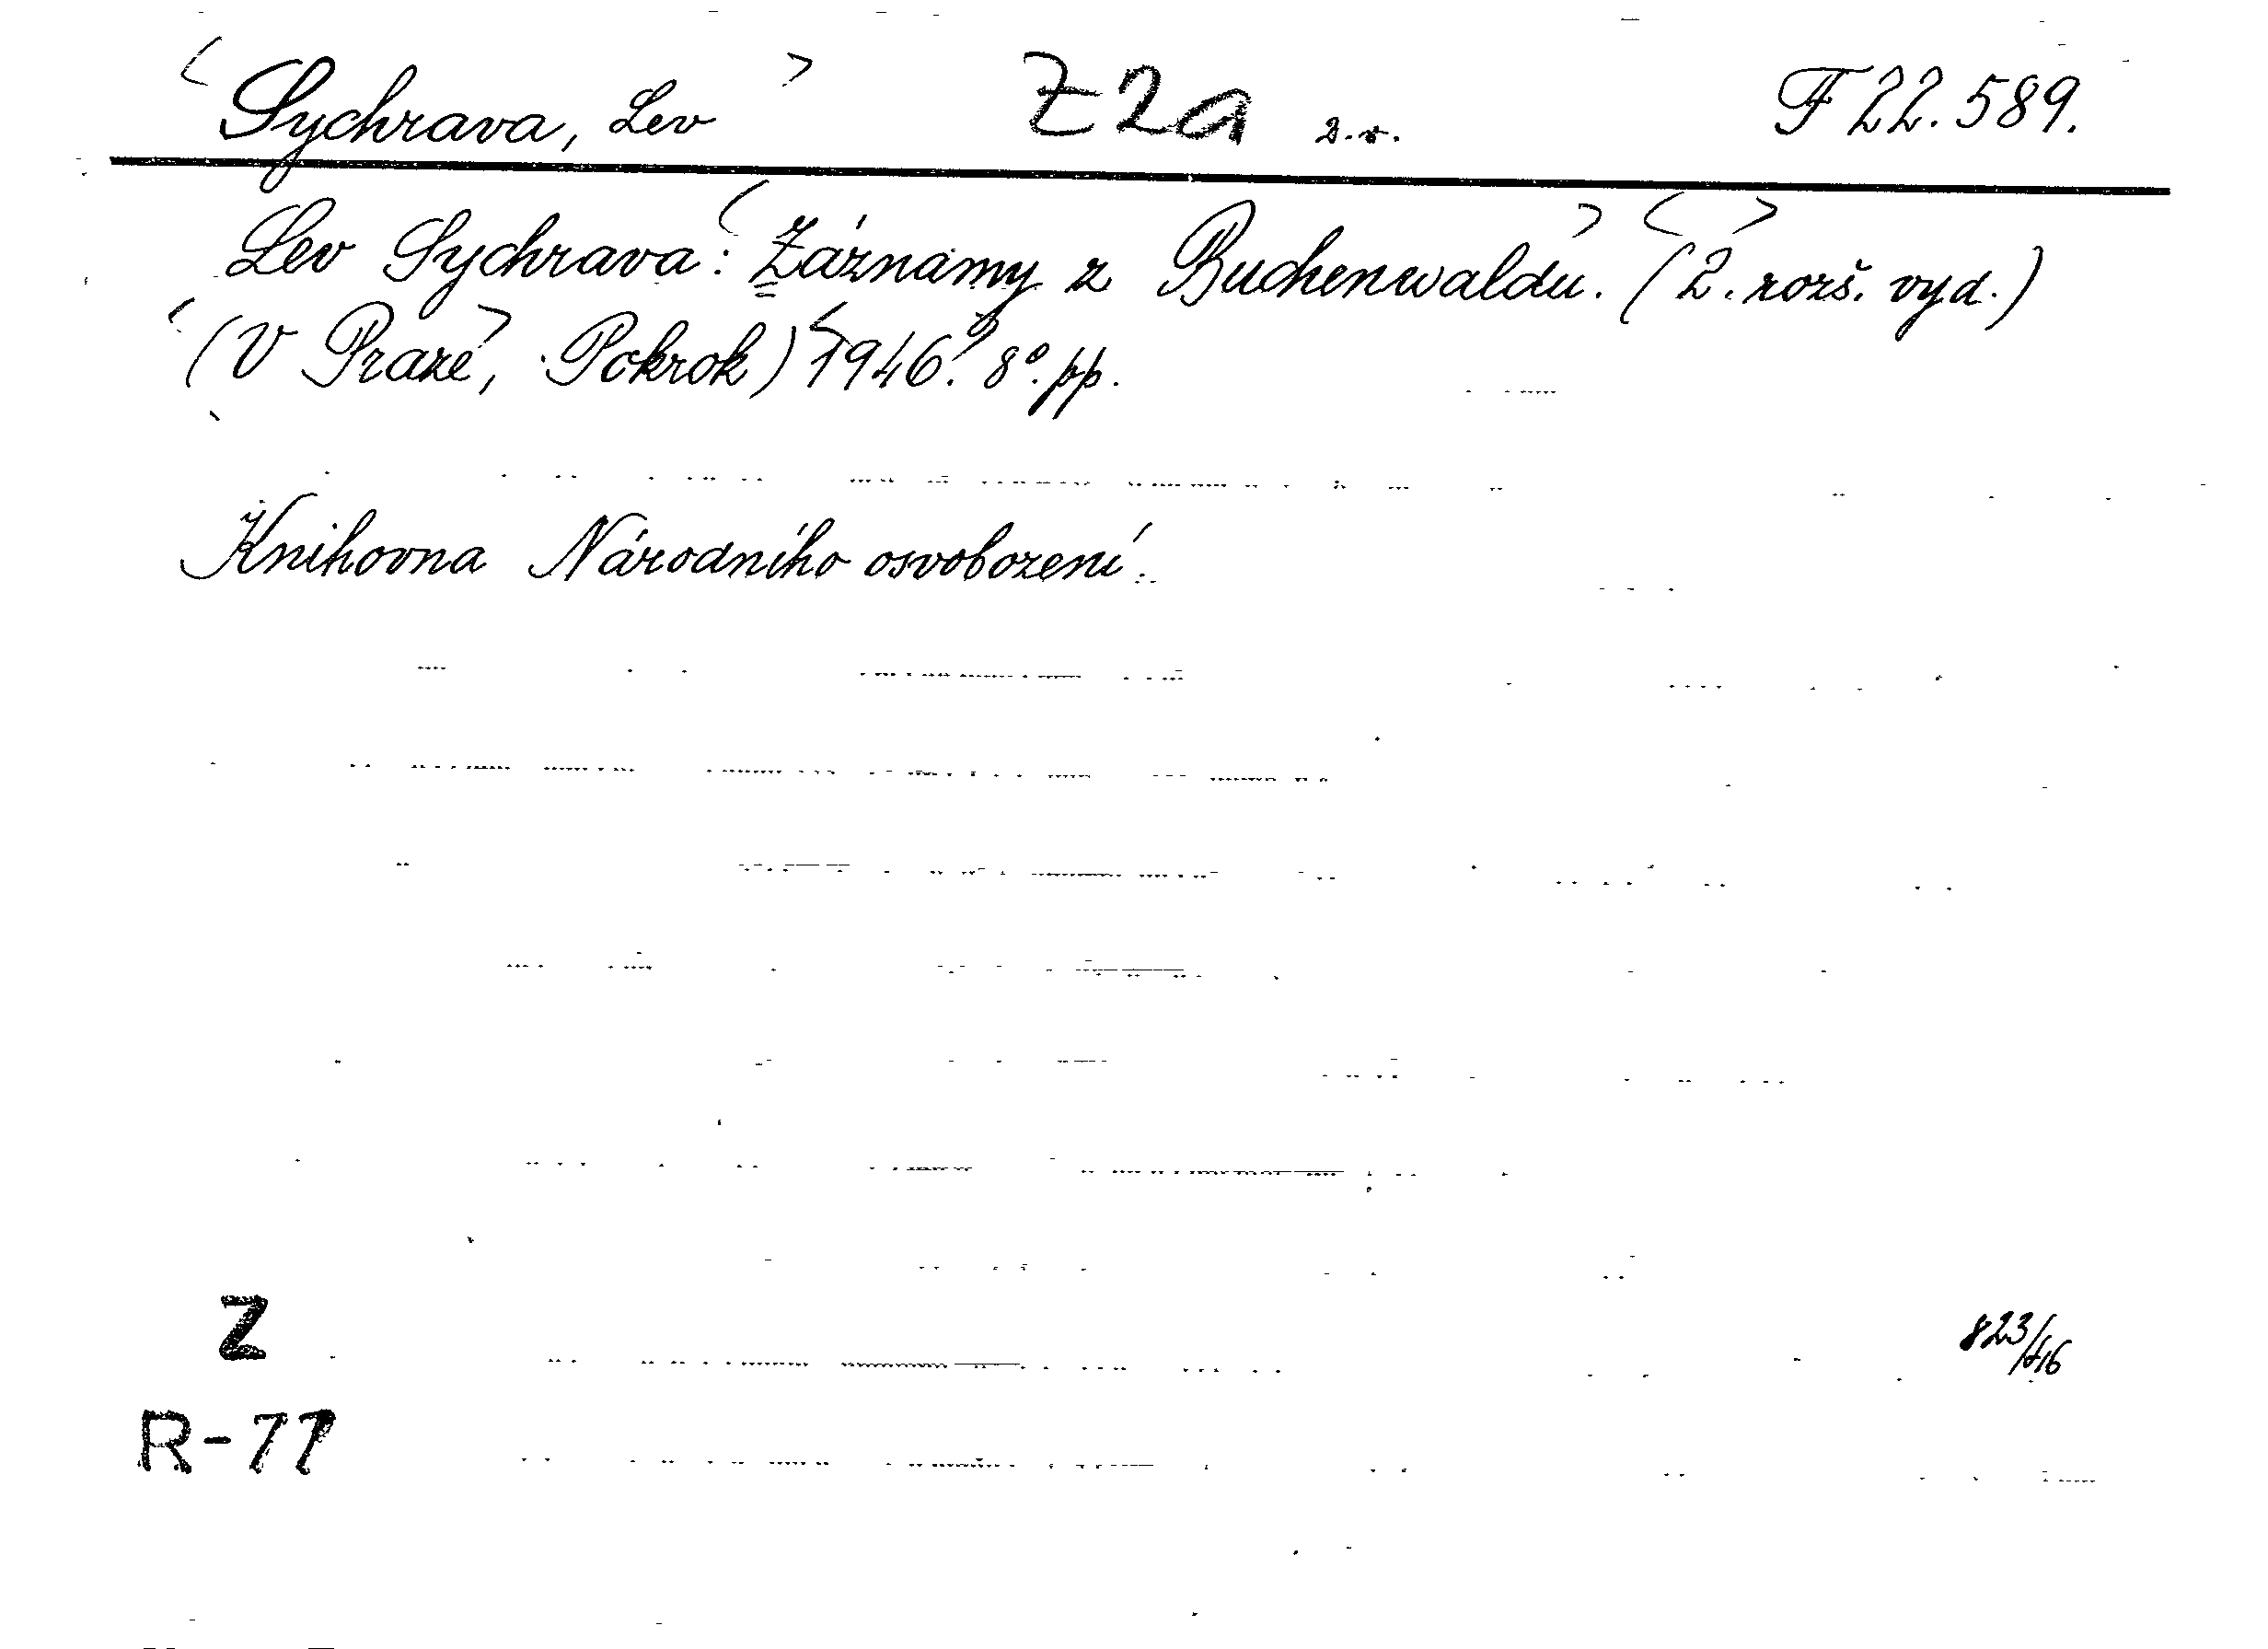 <Sychrava, Lev> Z2a 2.v. F 22.589.
Lev Sychrava: <Záznamy z Buchenwaldu.> (<2.> rozš. vyd.)
<(V Praze>, Pokrok) <1946.> 8°. pp.
Knihovna Národního osvobození.
Z
823/46
R-77